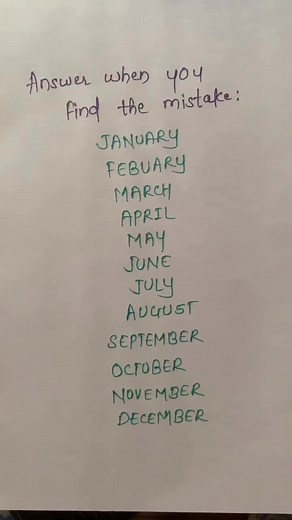 Answer when you
find the mistake:
JANUARY
FEBUARY
MARCH
APRIL
MAY
JUNE
JULY
AUGUST
SEPTEMBER
OCTOBER
NOVEMBER
DECEMBER